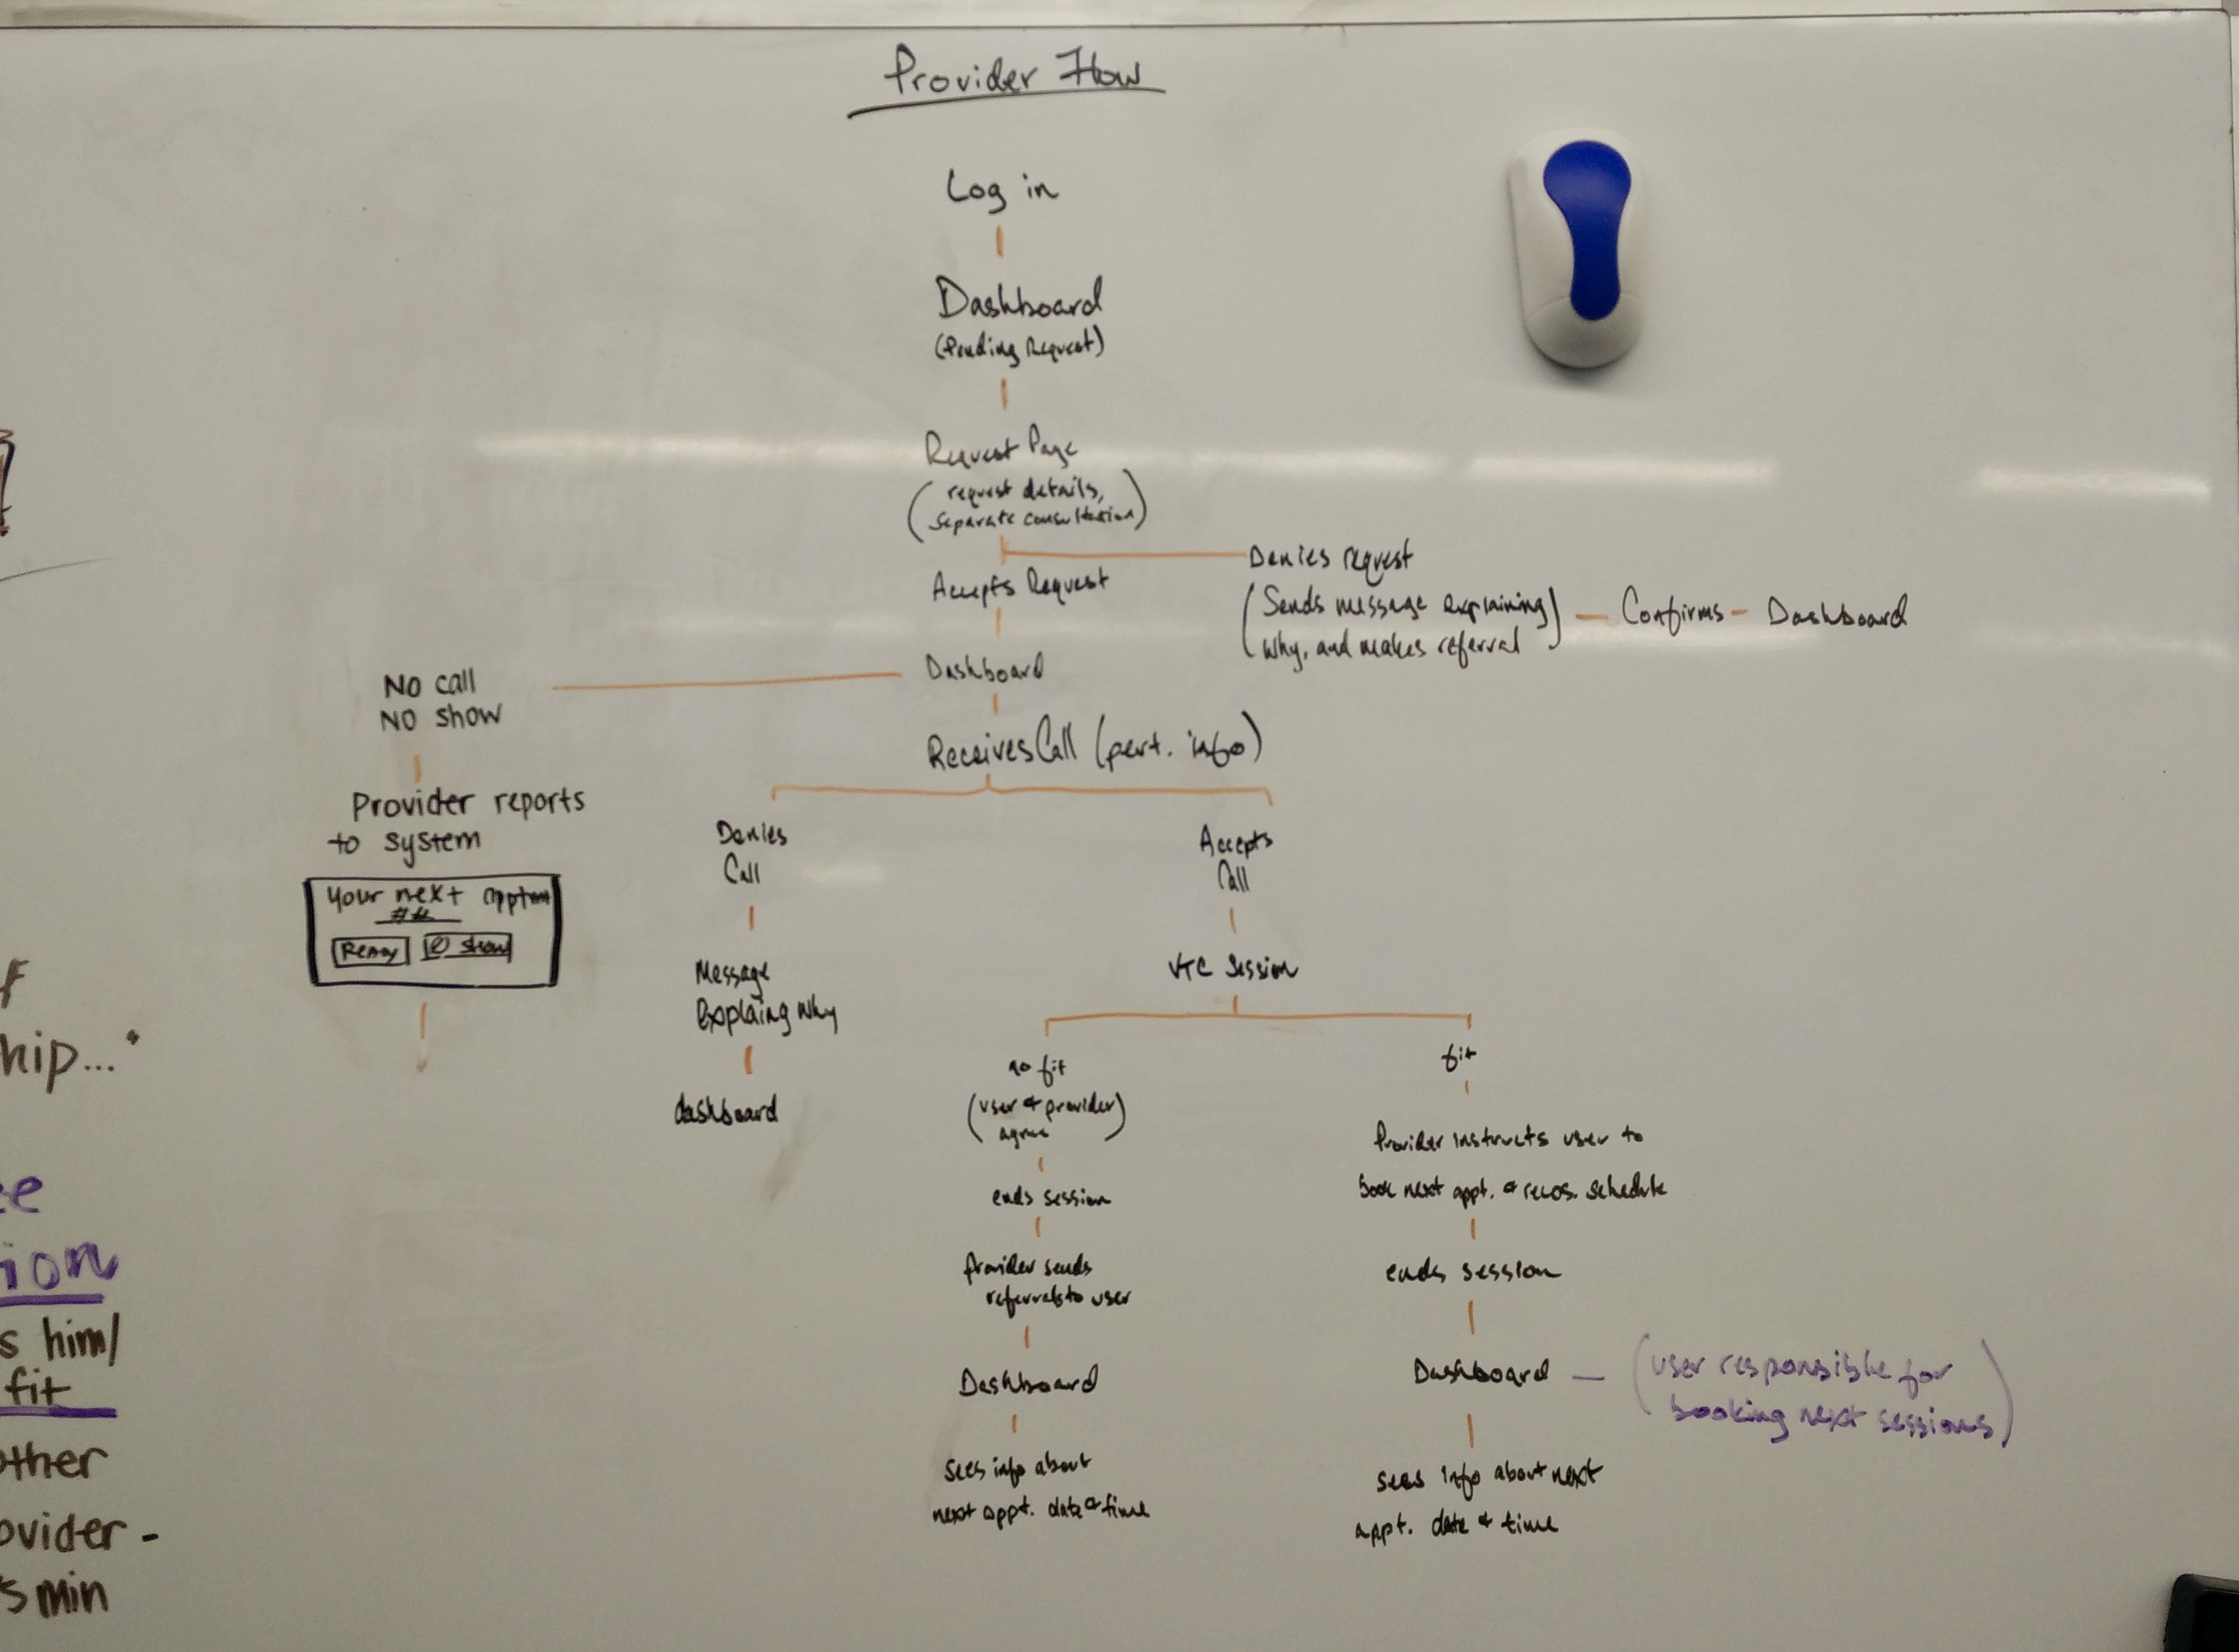 Provider Flow
Log in
Dashboard
(Pending Request)
Request Page
(request details,
separate consultation)
Accepts Request
Denies request
(Sends message explaining
why, and makes referral)
— Confirms — Dashboard
Dashboard
No call
No show
Provider reports
to system
Your next
##
Ready
Ø show
Receives Call (pert. info)
Denies
Call
Message
Explaing why
dashboard
Accepts
Call
VTC Session
no fit
(user & provider
agree)
ends session
Provider sends
referrals to user
Dashboard
sees info about
next appt. date & time
fit
Provider instructs user to
book next appt. & schedule
ends session
Dashboard — (user responsible for
booking next sessions)
sees info about next
appt. date & time
hip...
ion
s him/
fit
other
ovider -
5 min